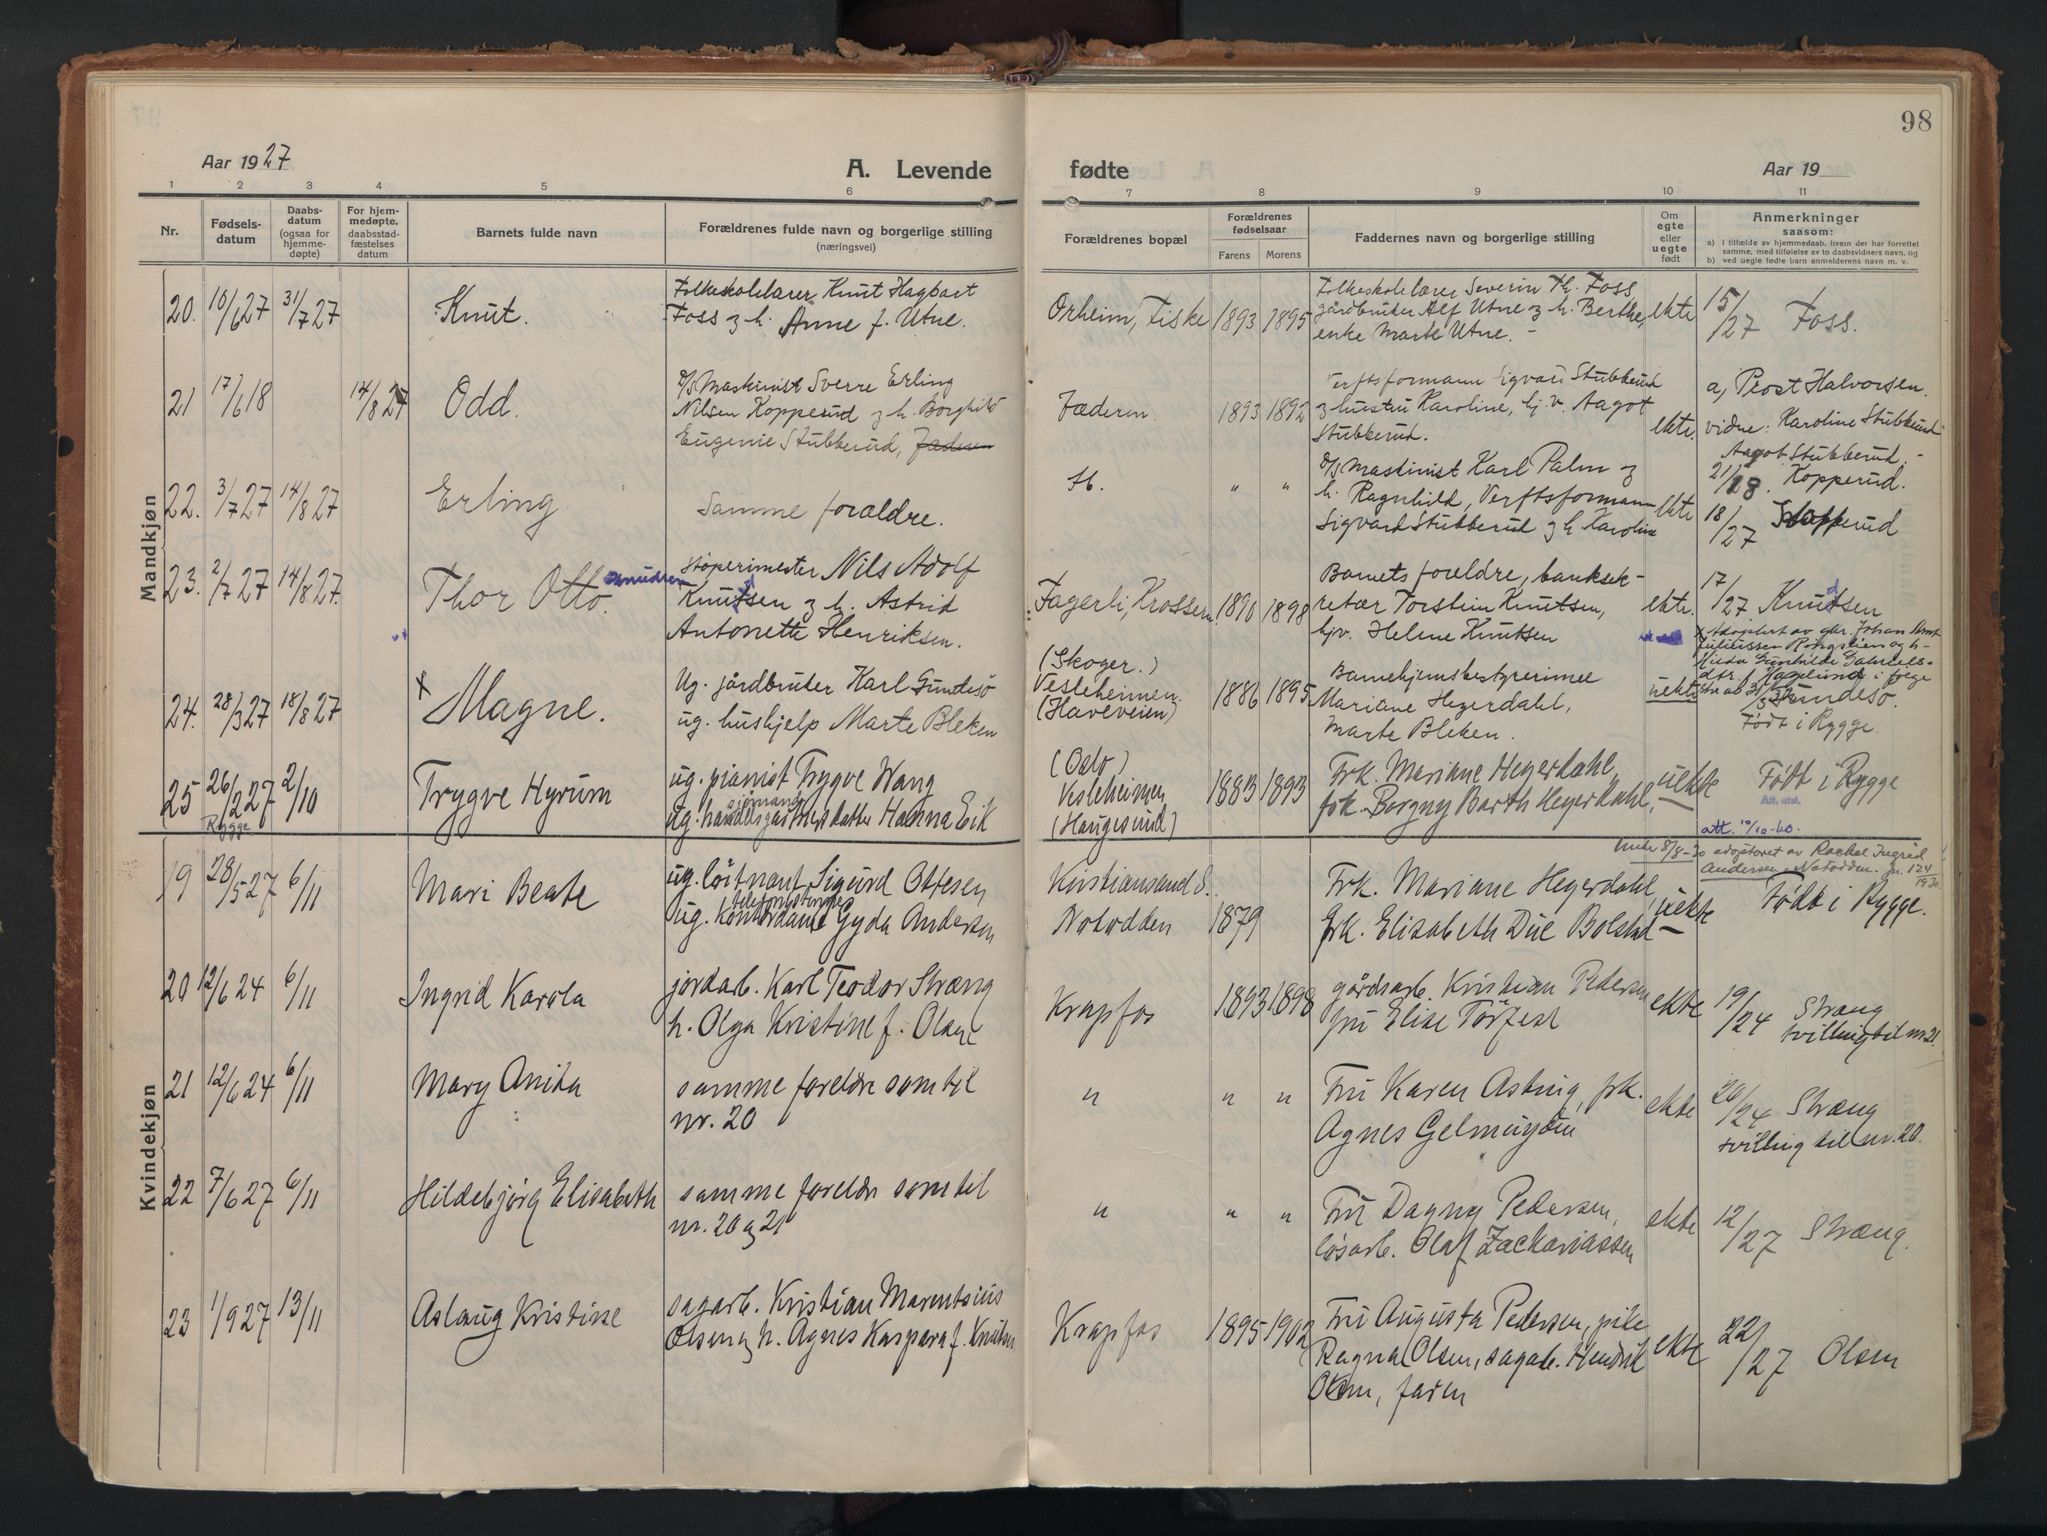 98
Aar 1927
A. Levende
fødte
Aar 19
1 2 3 4 5 6 7 8 9 10 11
Nr.
Fødsels-
datum
Daabs-
datum
(ogsaa for
hjemme-
døpte)
For hjem-
medøpte,
daabsstad-
fæstelses
datum
Barnets fulde navn
Forældrenes fulde navn og borgerlige stilling
(næringsvei)
Forældrenes bopæl
Forældrenes
fødselsaar
Farens Morens
Faddernes navn og borgerlige stilling
Om
egte
eller
uegte
født
Anmerkninger
saasom:
a) I tilfælde av hjemmedaab, hvem der har forrettet
samme, med tilføielse av to daabsvidners navn, og
b) ved uegte fødte barn anmelderens navn m. v.
Mandkjøn
20. 10/6 27 31/7 27
Knut.
Folkeskolelærer Knut Hagbart
Foss og h. Anne f. Utne.
Orheim, Fiske
1893 1895
Folkeskolelærer Severin Th. Foss
gårdbruker Alf Utne og h. Berthe,
enke Marte Utne. -
ekte
15/27 Foss.
21 17/6 18 14/8 27
Odd.
D/S Maskinist Sverre Erling
Nilsen Kopperud og h. Borghild
Eugenie Stubberud,
Fæderen.
1893 1892
Verftsformann Sigvart Stubberud
og hustru Karoline, hj.v. Aagot
Stubberud.
ekte.
a, Prost Halvorsen.
vidne: Karoline Stubberud
Aagot Stubberud. -
21/18. Kopperud.
22. 3/7 27 14/8 27
Erling
Samme forældre.
St.
" "
D/S Maskinist Karl Palm og
h. Ragnhild, Verftsformann
Sigvart Stubberud og h. Karoline
ekte
18/27
23. 2/7 27 14/8 27.
Thor Otto.
Støperimester Nils Adolf
Knutsen og h. Astrid
Antonette Henriksen.
Fagerli, Krossern.
1890 1898
Barnets forældre, banksek-
retær Torstein Knutsen,
hjv. Helene Knutsen
ekte.
17/27 Knudsen
24. 28/3 27 18/8 27
x Magne.
Ug. jårdbruker Karl Gundesø
ug. hushjelp Marte Bleken
(Skoger.)
Vesleheimen.
(Haveveien)
1886 1895
Barnehjemsbestyrerinne
Mariane Heyerdahl,
Marte Bleken.
uekte
x Adoptert av gbr. Johan
Juliussen Ringslien og h.
Hilda Gunhilde Gabriels-
dtr. Hagelund i følge
Gundesø.
Født i Rygge.
25 26/2 27 2/10
Rygge
Trygve Hyrum
ug. pianist Trygve Wang
sjømands
ug. datter Hanna Eik
(Oslo)
Vesleheimen
(Haugesund)
1883 1893
Frk. Mariane Heyerdahl,
frk. Borgny Barth Heyerdahl,
uekte
Født i Rygge
Att. utst.
att. 10/10-60.
Kvindekjøn
19 28/5 27 6/11
Mari Beate
ug. løitnant Sigurd Ottesen
telefonistinne
ug. kontordame Gyda Andersen
Kristiansand S.
Notodden
1879
Frk. Mariane Heyerdahl,
frk. Elisabeth Due Bolstad
uekte
Under 8/8-30 adoptoret av Rachel Ingrid
Andersen, Notodden. Jn. 124/1930
Født i Rygge.
20 12/6 24 6/11
Ingrid Karola
jordarb. Karl Teodor Stræng
h. Olga Kristine f. Olsen
Krapfos
1893 1898
gårdsarb. Kristian Pedersen
fru Elise Torfest
ekte
19/24 Stræng
tvilling til nr. 21.
21 12/6 24 6/11
Mary Anita
samme foreldre som til
nr. 20
" " "
Fru Karen Astrup, frk.
Agnes Gelmuyden
ekte
20/24 Stræng
tvilling til nr. 20.
22 7/6 27 6/11
Hildebjørg Elisabeth
samme foreldre som til
nr. 20 og 21
" " "
Fru Dagny Pedersen,
løsarb. Olaf Zackariassen
ekte
12/27 Stræng.
23 1/9 27 13/11
Aslaug Kristine
sagarb. Kristian Marentsius
Olsen og h. Agnes Kaspara f. Knutsen
Krapfos
1895 1902
Fru Augusta Pedersen, pike
Ragna Olsen, sagarb. Hendrik
Olsen, faren
ekte
22/27 Olsen